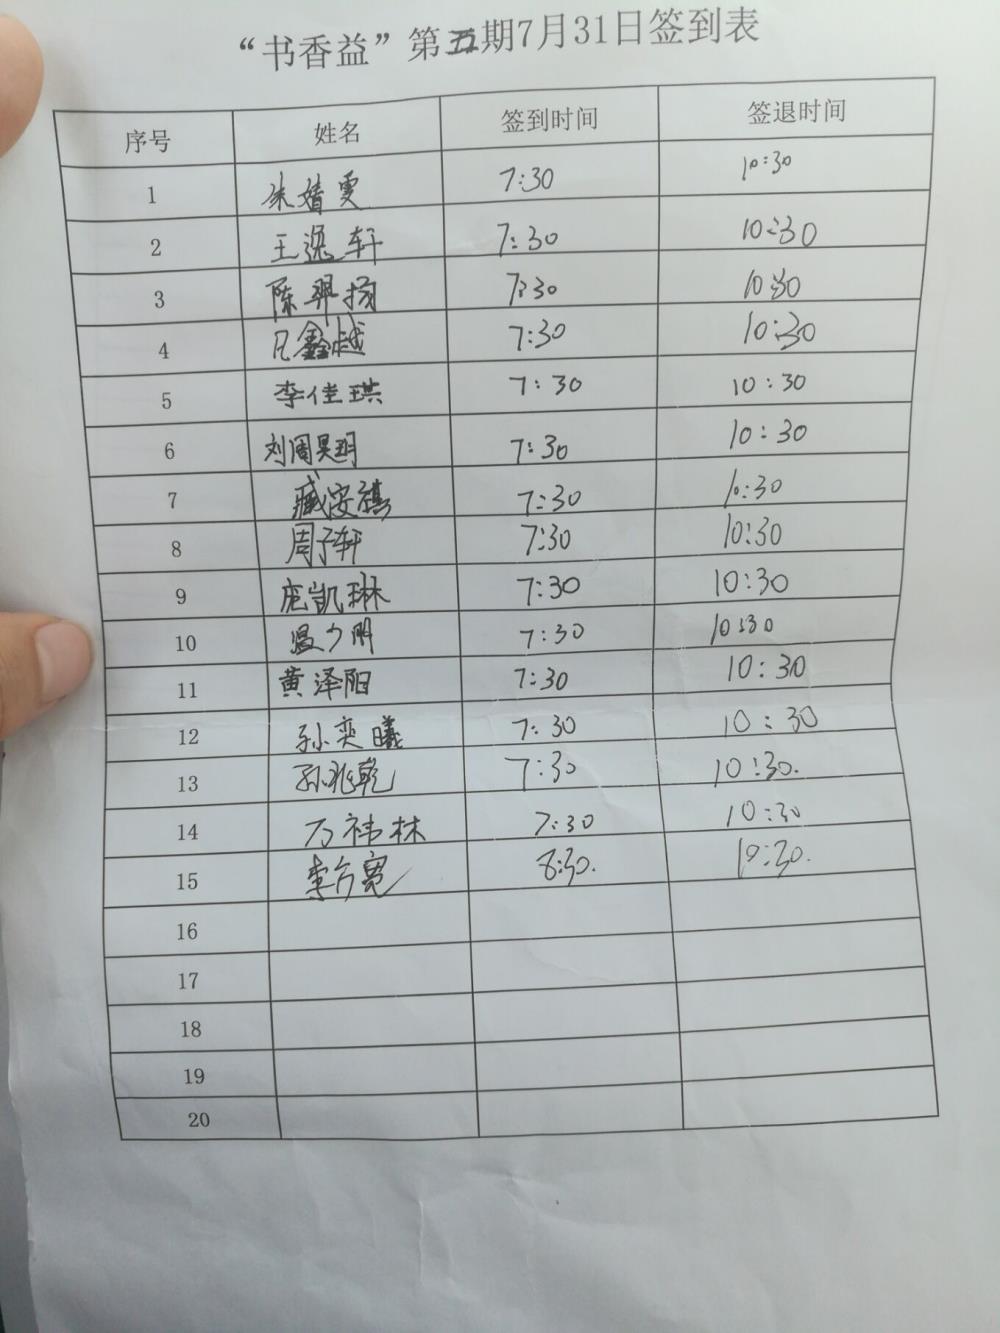 “书香益”第五期7月31日签到表
序号 姓名 签到时间 签退时间
1 朱婧雯 7:30 10:30
2 王逸轩 7:30 10:30
3 陈翆扬 7:30 10:30
4 鑫越 7:30 10:30
5 李佳琪 7:30 10:30
6 刘周昊玥 7:30 10:30
7 臧安祺 7:30 10:30
8 周子轩 7:30 10:30
9 庞凯琳 7:30 10:30
10 温少明 7:30 10:30
11 黄泽阳 7:30 10:30
12 孙奕曦 7:30 10:30
13 孙兆乾 7:30 10:30.
14 万祎林 7:30 10:30
15 李方宽 8:30. 10:30.
16
17
18
19
20